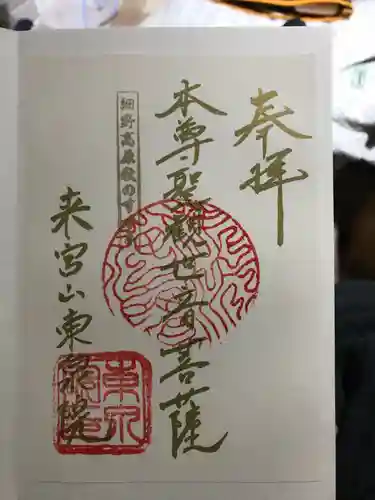 奉拝
本尊聖観世音菩薩
細野高原秋のすすき
来宮山東泉院
東泉院